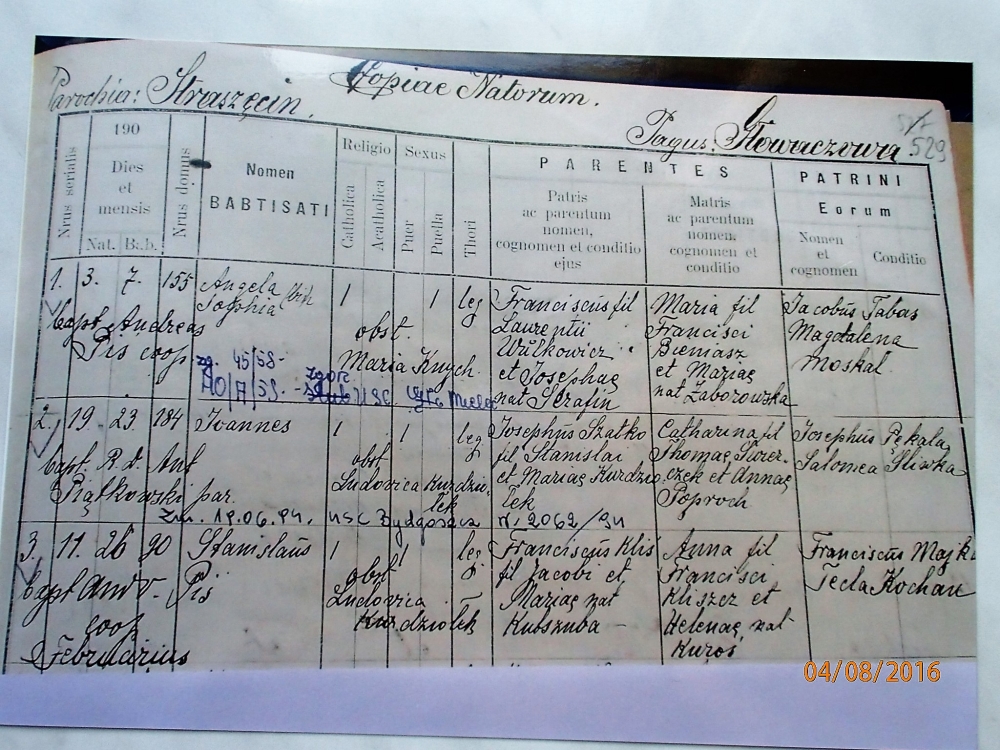 Parochia: Straszęcin. Copiae Natorum.
Pagus: Głowaczowa 529
Nrus serialis
190
Dies
et
mensis
Nat. Bab.
Nrus domus
Nomen
BABTISATI
Religio
Catholica
Acatholica
Sexus
Puer
Puella
Thori
PARENTES
Patris
ac parentum
nomen,
cognomen et conditio
ejus
Matris
ac parentum
nomen,
cognomen et
conditio
PATRINI
Eorum
Nomen
et
cognomen
Conditio
1. 3. 7. 155 Angela
Sophia
1 1 leg
Bapt. Andreas
Pis coop
obst.
Maria Knych.
Franciscus fil
Laurentii
Wulkowicz
et Josephae
nat Serafin
Maria fil
Francisci
Bieniasz
et Mariae
nat Zaborowska
Jacobus Tabas
Magdalena
Moskal.
45/58-
2. 19. 23. 184 Joannes
1 1 leg
Bapt. R. D. Ant
Piątkowski par.
obst
Ludovica Kurdzio
łek
Josephus Szatko
fil Stanislai
et Mariae Kurdzio
łek
Catharina fil
Thomae
czek et Annae
Poproch
Josephus Pękala
Salomea Śliwka
Zm. 19.06.94. USC Bydgoszcz nr. 2062/94
3. 11. 26 90 Stanislaus
1 1 leg
Bapt And. Pis
coop
obst
Ludovica
Kurdziołek
Franciscus Klis
fil Jacobi et
Mariae nat
Kubszuba
Anna fil
Francisci
Kliszcz et
Helenae nat
Kuroś
Franciscus Majka
Tecla Kochan
Februarius
04/08/2016